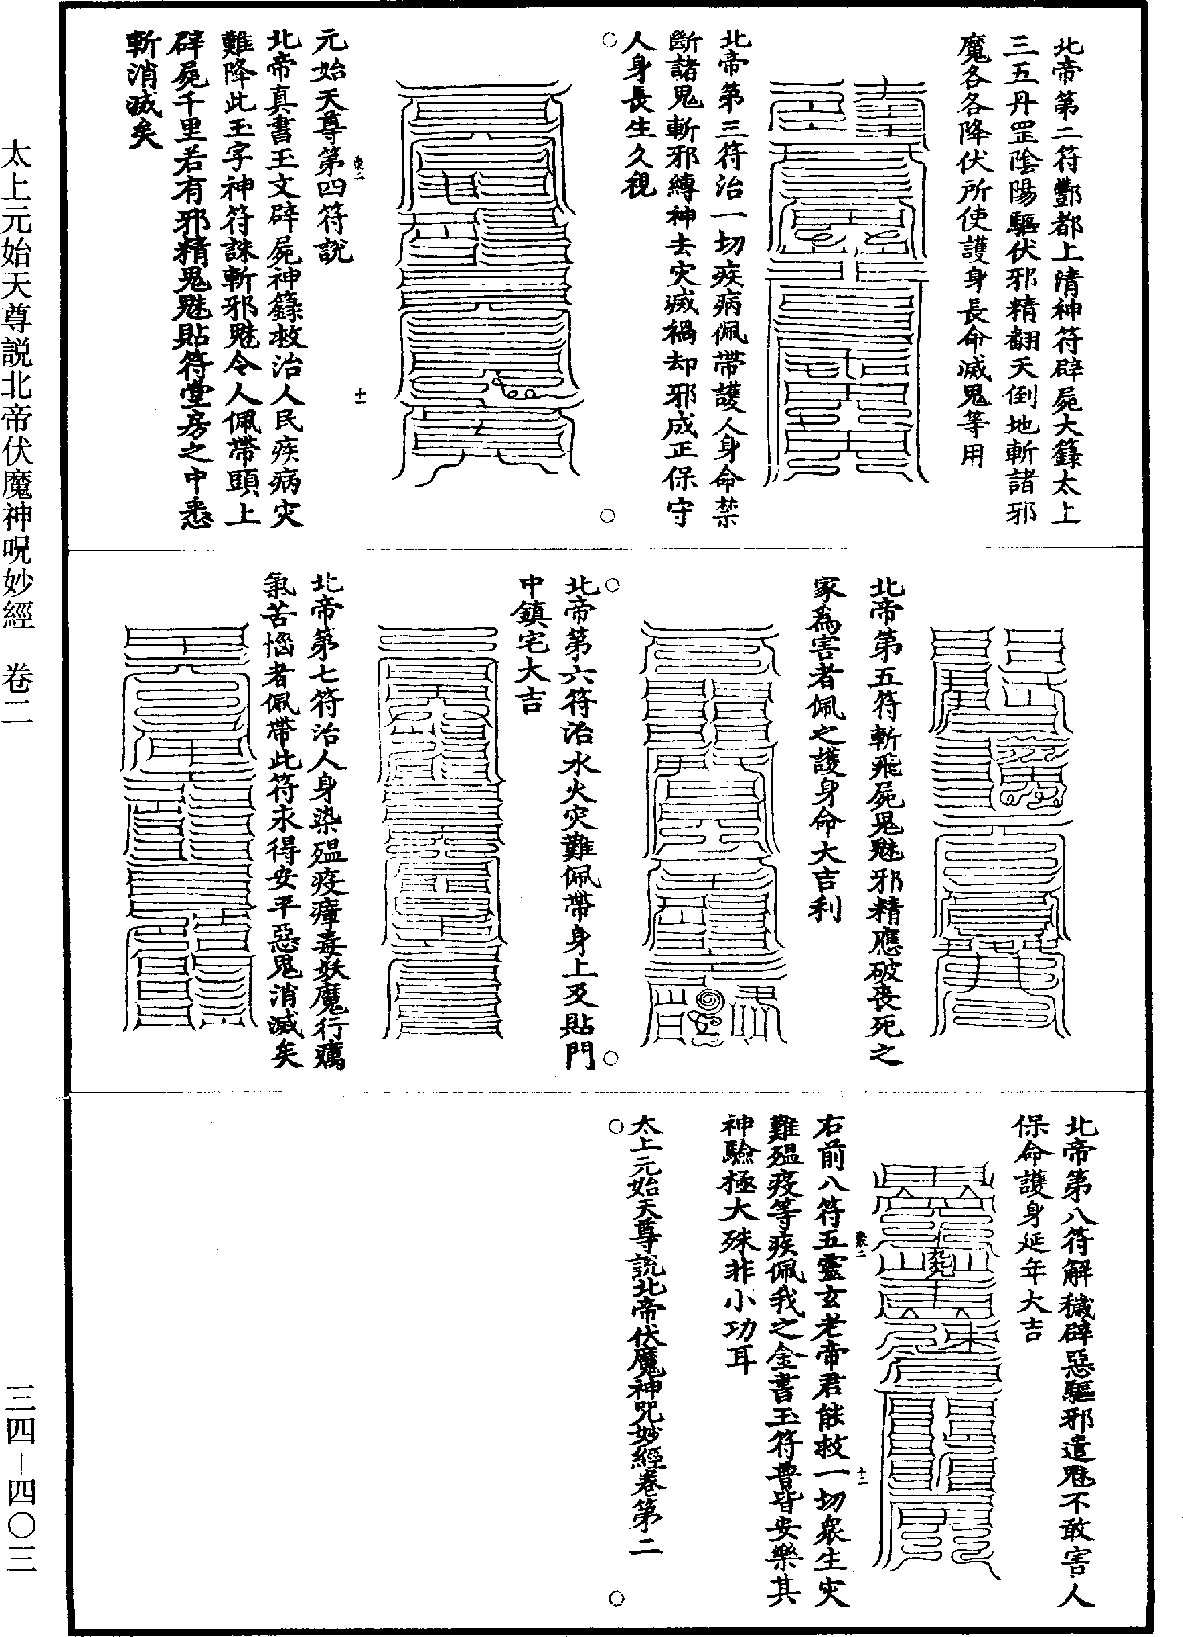 北帝第二符酆都上清神符辟屍大籙太上
三五丹罡陰陽驅伏邪精翻天倒地斬諸邪
魔各各降伏所使護身長命滅鬼等用
北帝第三符治一切疾病佩帶護人身命禁
斷諸鬼斬邪縛神去灾滅禍却邪成正保守
人身長生久視
元始天尊第四符說
北帝真書玉文辟屍神籙救治人民疾病灾
難降此玉字神符誅斬邪魅令人佩帶頭上
辟屍千里若有邪精鬼魅貼符堂房之中悉
斬消滅矣
十一
北帝第五符斬飛屍鬼魅邪精應破喪死之
家為害者佩之護身命大吉利
北帝第六符治水火灾難佩帶身上及貼門
中鎮宅大吉
北帝第七符治人身染瘟疫瘴毒妖魔行癘
氣苦惱者佩帶此符永得安平惡鬼消滅矣
北帝第八符解穢辟惡驅邪遣魅不敢害人
保命護身延年大吉
十二
右前八符五靈玄老帝君能救一切眾生灾
難瘟疫等疾佩我之金書玉符普皆安樂其
神驗極大殊非小功耳
太上元始天尊說北帝伏魔神咒妙經卷第二
太上元始天尊説北帝伏魔神呪妙經 卷二
三四－四〇三